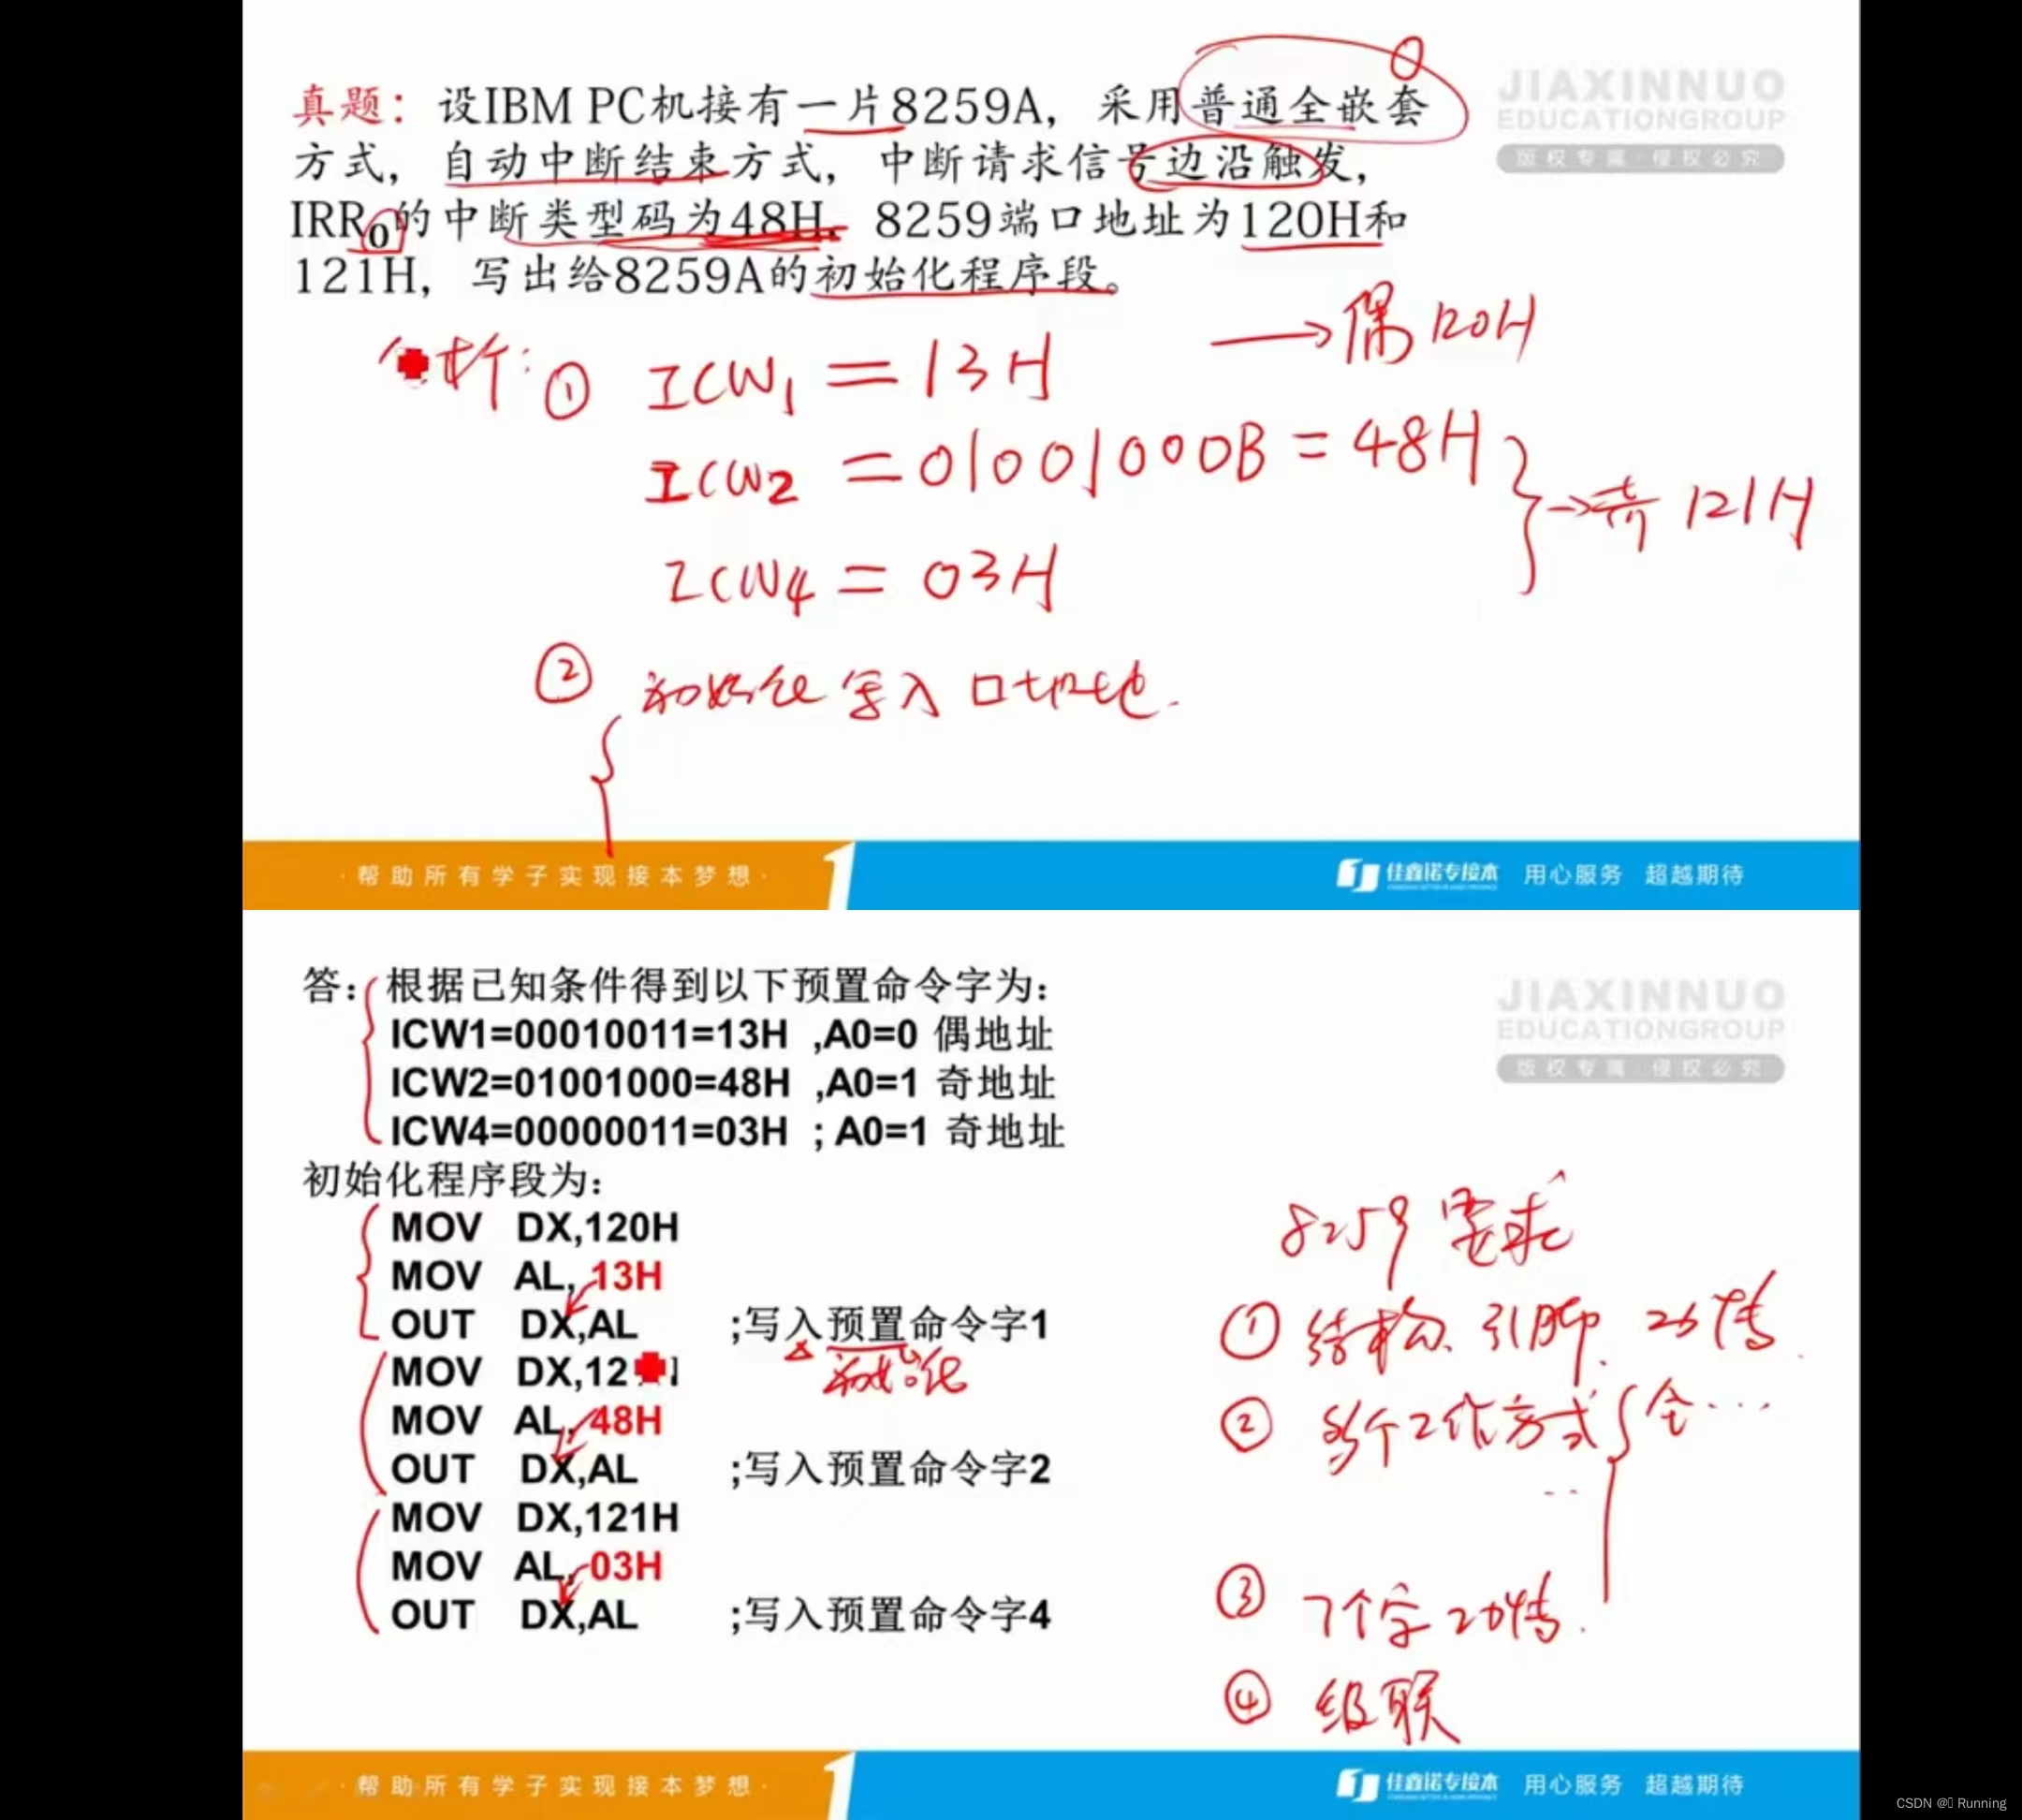 真题：设IBM PC机接有一片8259A，采用普通全嵌套
方式，自动中断结束方式，中断请求信号边沿触发，
IRR0的中断类型码为48H，8259端口地址为120H和
121H，写出给8259A的初始化程序段。
JIAXINNUO
EDUCATIONGROUP
版权专属·侵权必究
析：① ICW1 = 13H → 偶 120H
ICW2 = 01001000B = 48H
→奇 121H
ICW4 = 03H
② 初始化写入口地址.
·帮助所有学子实现接本梦想·
佳鑫诺专接本 用心服务 超越期待
答：根据已知条件得到以下预置命令字为：
ICW1=00010011=13H ,A0=0 偶地址
ICW2=01001000=48H ,A0=1 奇地址
ICW4=00000011=03H ; A0=1 奇地址
初始化程序段为：
JIAXINNUO
EDUCATIONGROUP
版权专属·侵权必究
MOV DX,120H
MOV AL, 13H
OUT DX,AL ;写入预置命令字1
初始化
MOV DX,12
MOV AL, 48H
OUT DX,AL ;写入预置命令字2
MOV DX,121H
MOV AL, 03H
OUT DX,AL ;写入预置命令字4
8259 要求
① 结构、引脚.
② 多个工作方式 { 全···
③ 7个字
④ 级联
·帮助所有学子实现接本梦想·
佳鑫诺专接本 用心服务 超越期待
CSDN @ Running